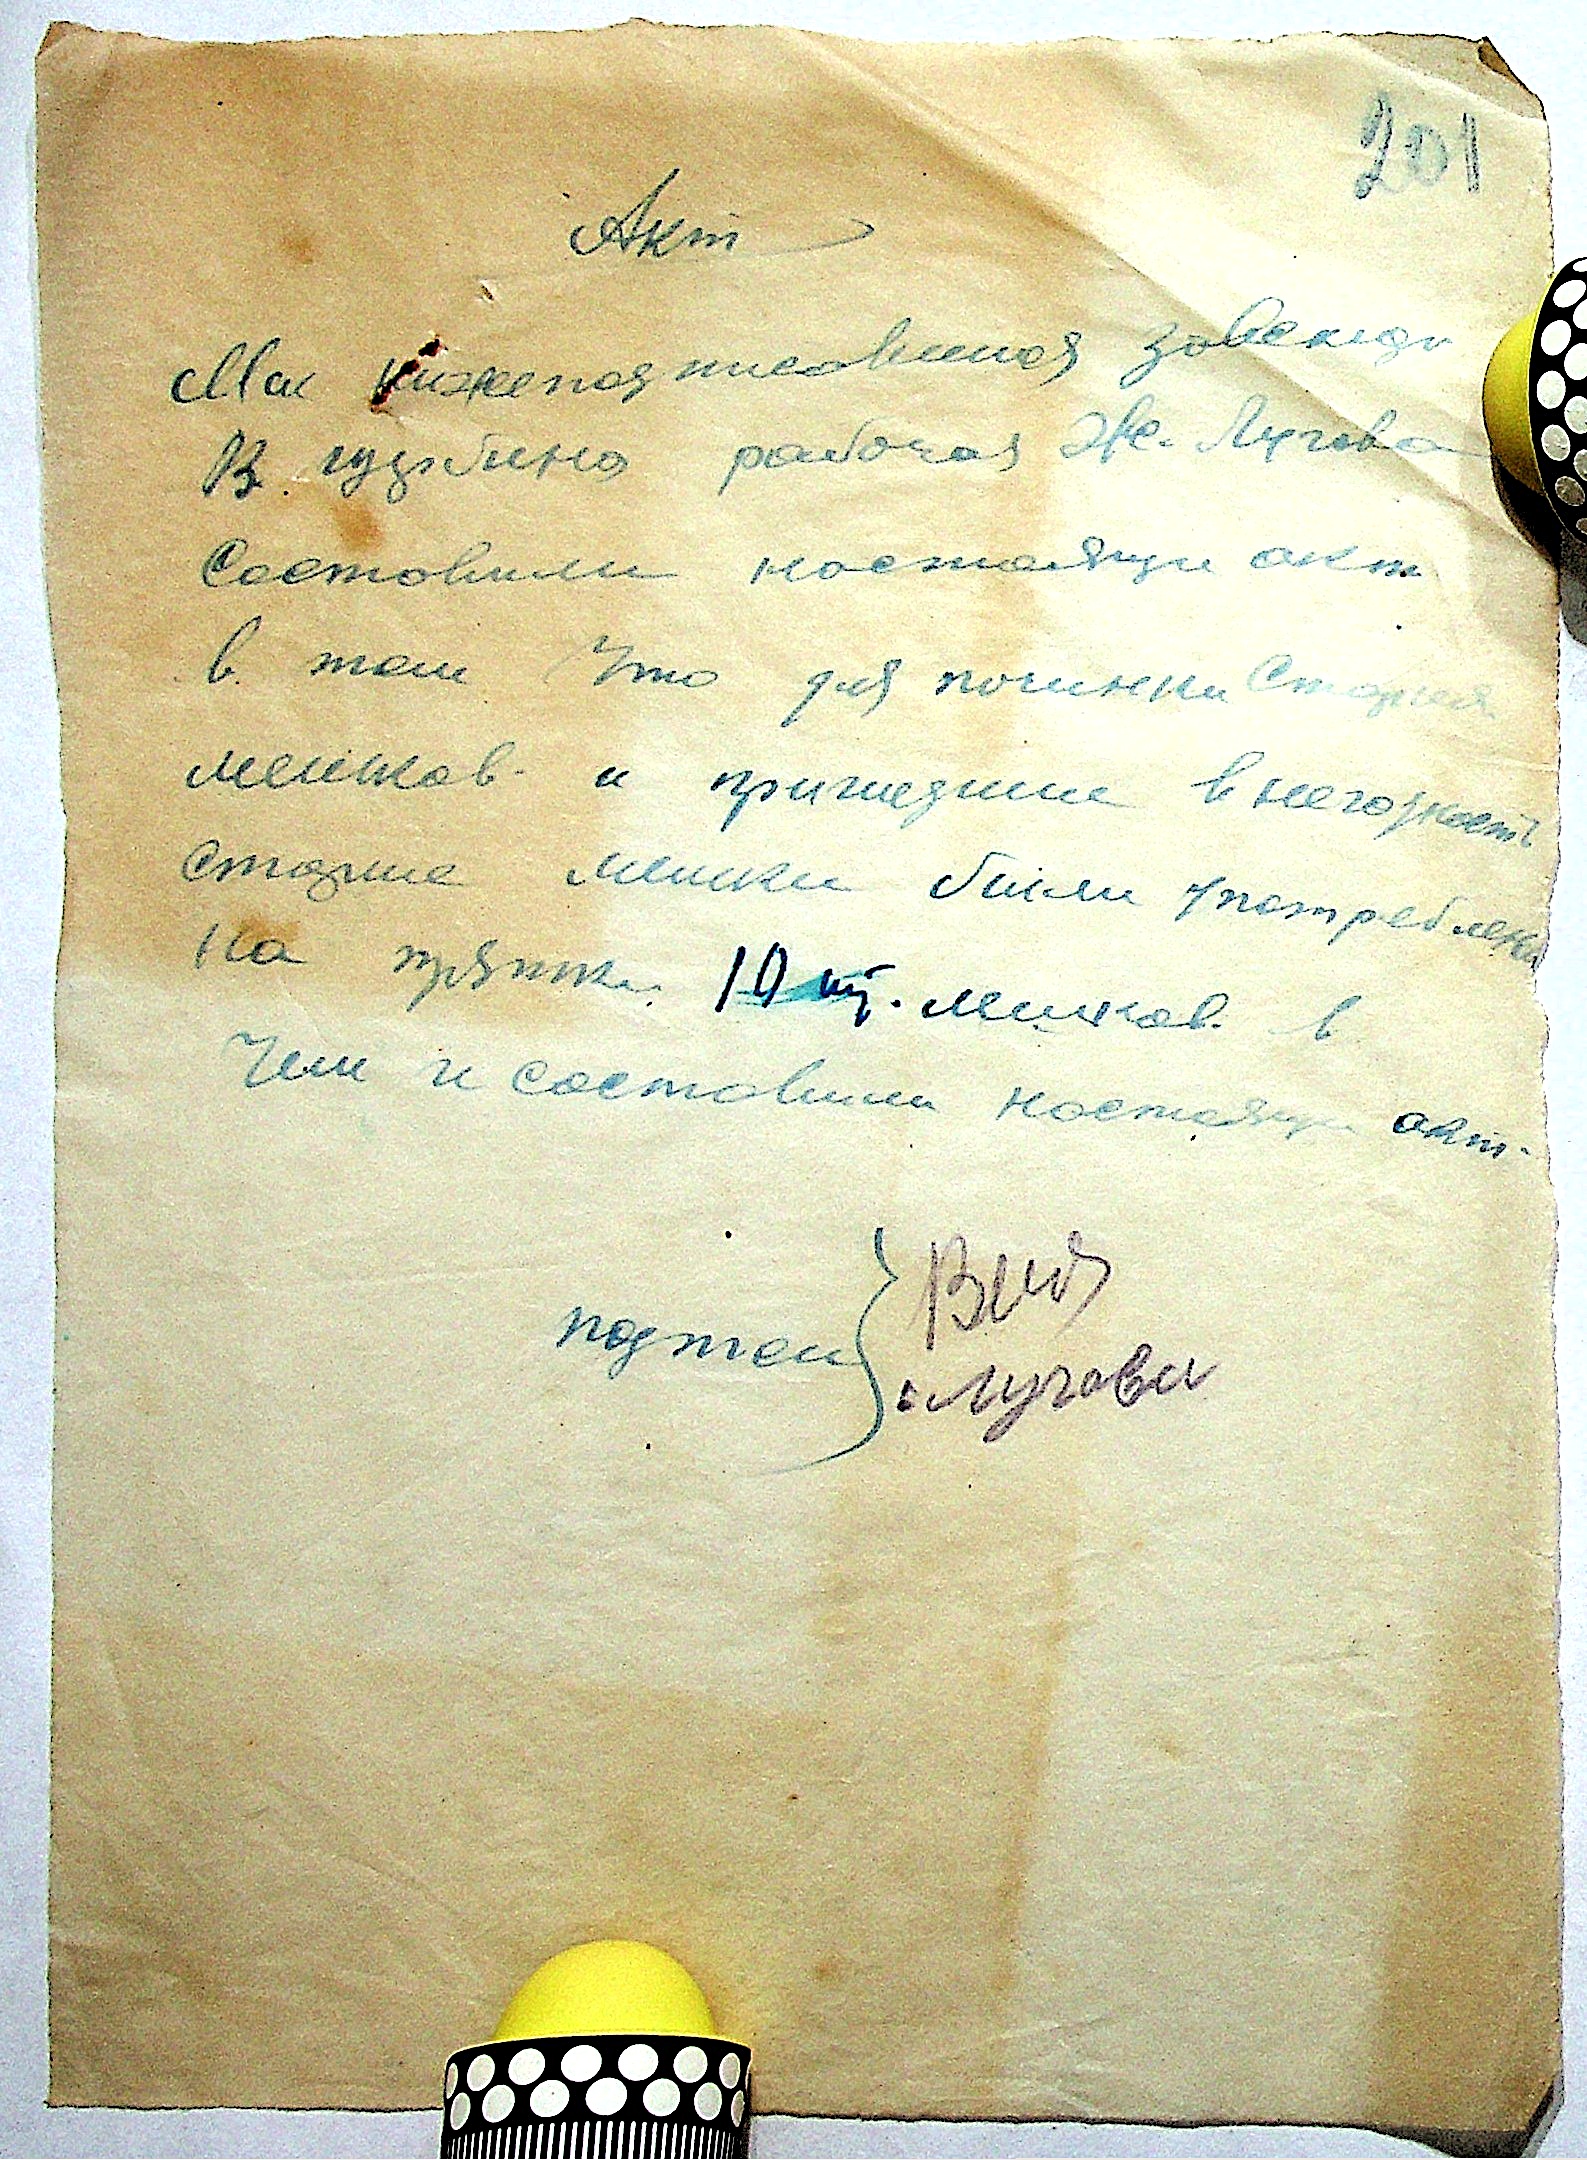 201
Акт
Мы нижеподписавшися
В. рабочая Же. Лугова
Составили настоящи акт
в том Что для починки Старых
мешков и пришедшие в негодность
старые мешки были употреблены
на тряпки 10 шт. мешков. в
Чем и составили настоящи акт.
подписи
Лугова